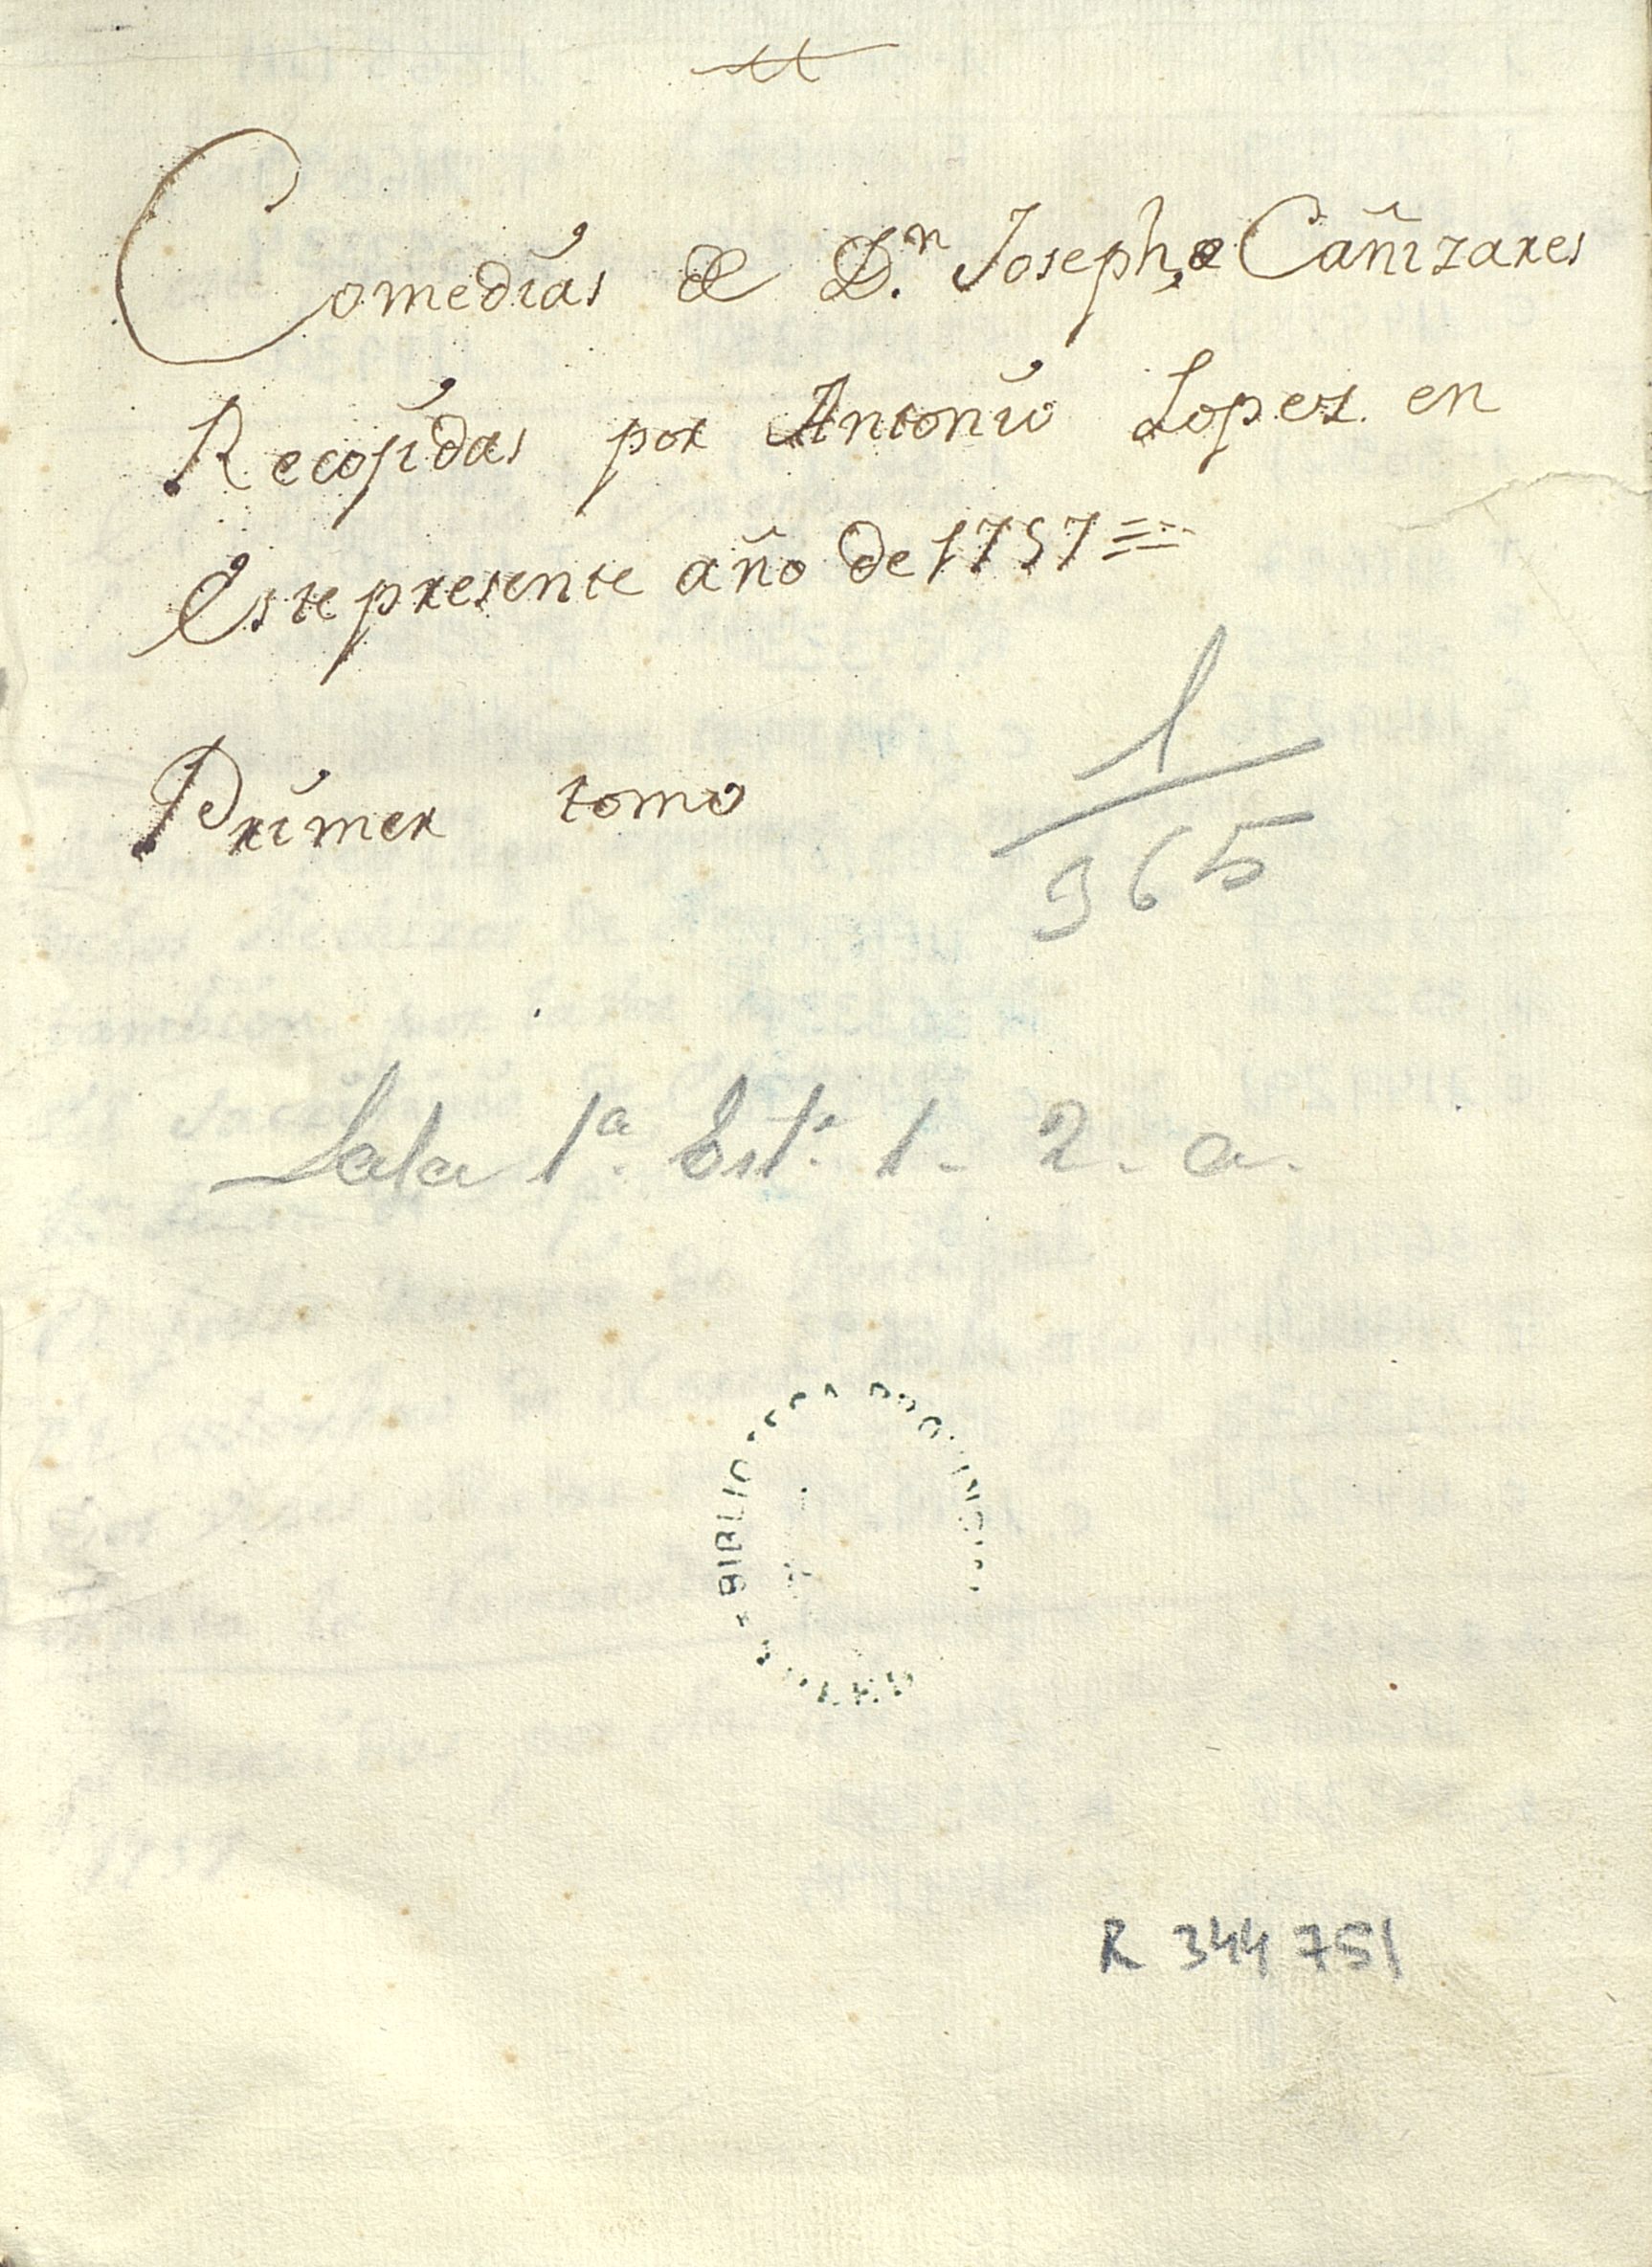 Comedias de D.n Joseph, de Cañizares
Recojidas por Antonio Lopez en
Este presente año de 1757 =
Primer tomo
1
365
Sala 1ª. Est.e 1. 2. a.
BIBLIO
R 344 751